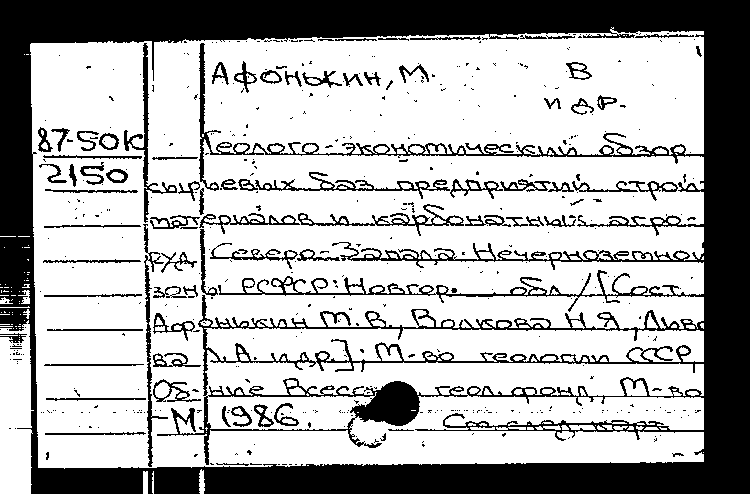 Афонькин, М. В
и др.
87-50К Геолого-экономический обзор
2150 сырьевых баз предприятий строй-
материалов и карбонатных агро-
руд Северо-Запада Нечерноземной
зоны РСФСР: Новгор. обл / [Сост.
Афонькин М.В., Волкова Н.Я.,
Л.А. и др.]; М-во геологии СССР,
Об-ние геол. фонд, М-во
-М., 1986. См. след. карт